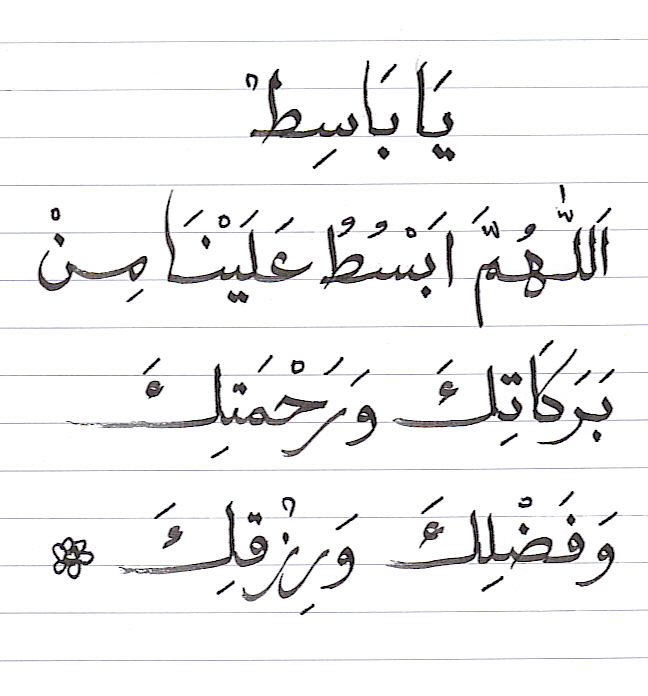 يَا بَاسِطْ
اَللّٰهُمَّ ابَسْطُ عَلَيْنَا مِنْ
بَرَكَاتِكَ وَرَحْمَتِكَ
وَفَضْلِكَ وَرِزْقِكَ